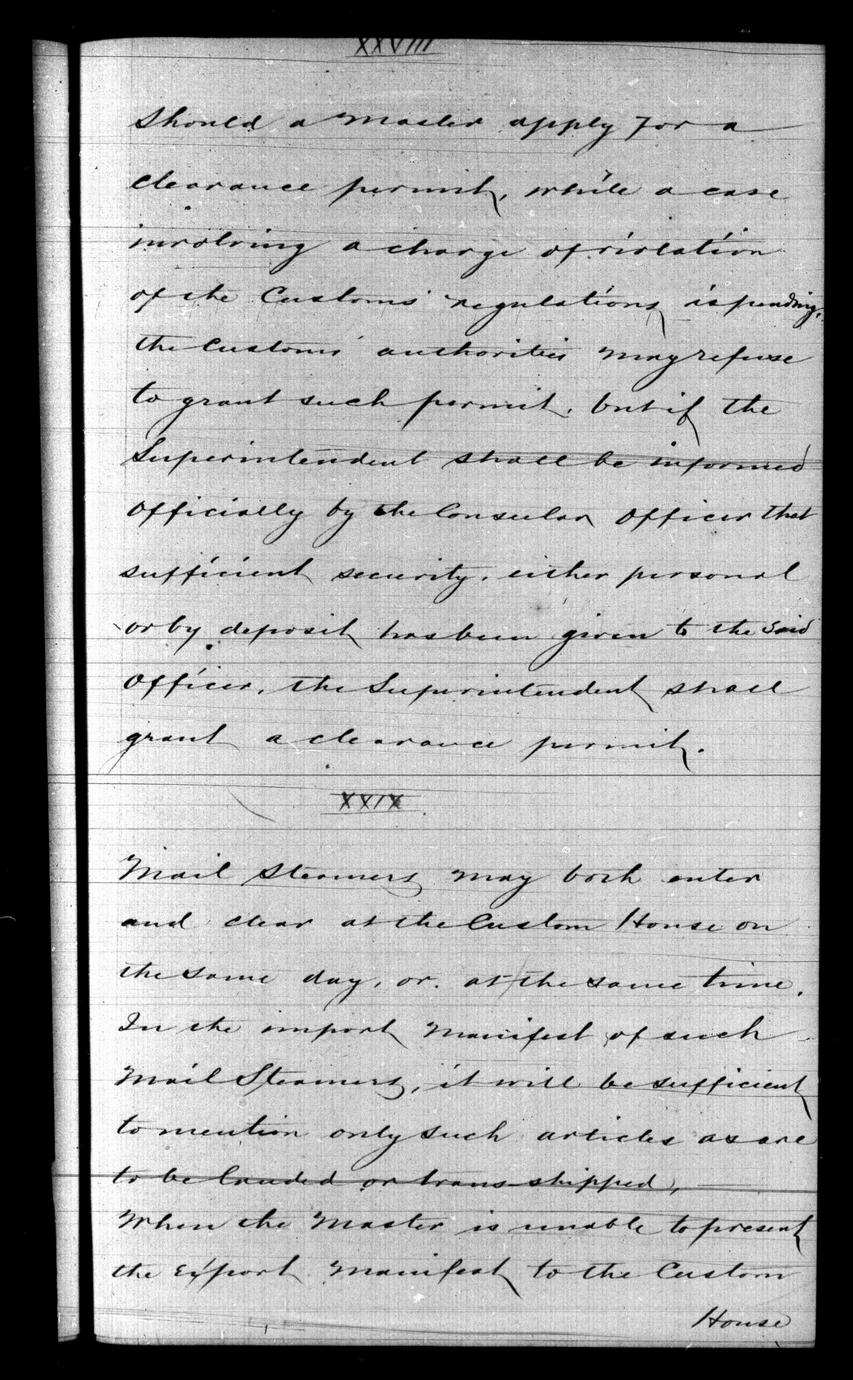 XXVIII
Should a Master apply for a
clearance permit, while a case
involving a charge of violation
of the Customs' regulations is pending,
the Customs' authorities may refuse
to grant such permit, but if the
Superintendent shall be informed
Officially by the Consular Officer that
sufficient security, either personal
or by deposit has been given to the said
Officer, the Superintendent shall
grant a clearance permit.
XXIX
Mail Steamers may both enter
and clear at the Custom House on
the same day, or at the same time.
In the import Manifest of such
Mail Steamers, it will be sufficient
to mention only such articles as are
to be landed or trans-shipped,
When the Master is unable to present
the Export Manifest to the Custom
House